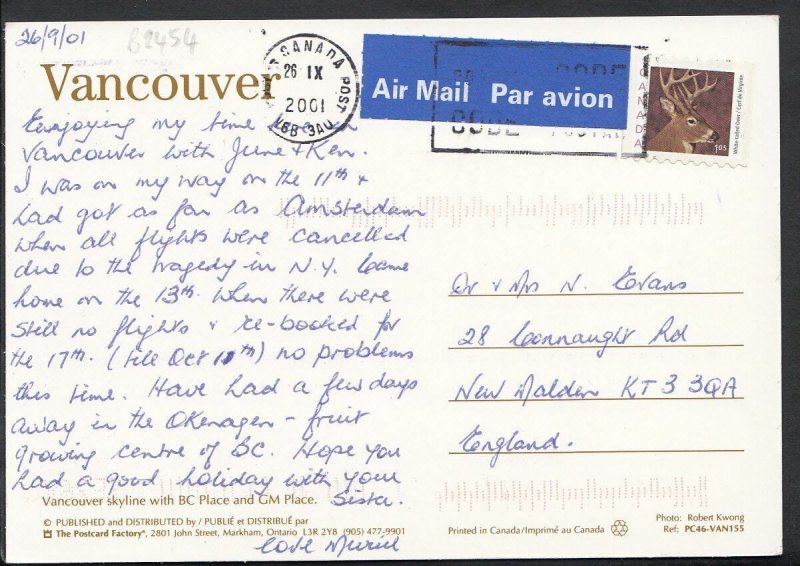 26/9/01
B2454
Vancouver
CANADA POST
26 IX
2001
V6B 3A0
Air Mail Par avion
CODE
CODE POSTAL
CANADA
White-tailed Deer / Cerf de Virginie
1.05
Enjoying my time in
Vancouver with June & Ken.
I was on my way on the 11th &
had got as far as Amsterdam
when all flights were cancelled
due to the tragedy in N.Y. Came
home on the 13th when there were
still no flights & re-booked for
the 17th. (till Oct 11th) no problems
this time. Have had a few days
away in the Okenagen - fruit
growing centre of BC. Hope you
had a good holiday with your
Sister.
Love Muriel
Dr & Mrs N. Evans
28 Connaught Rd
New Malden KT3 3QA
England.
Vancouver skyline with BC Place and GM Place.
© PUBLISHED and DISTRIBUTED by / PUBLIÉ et DISTRIBUÉ par
The Postcard Factory®, 2801 John Street, Markham, Ontario L3R 2Y8 (905) 477-9901
Printed in Canada/Imprimé au Canada
Photo: Robert Kwong
Ref: PC46-VAN155